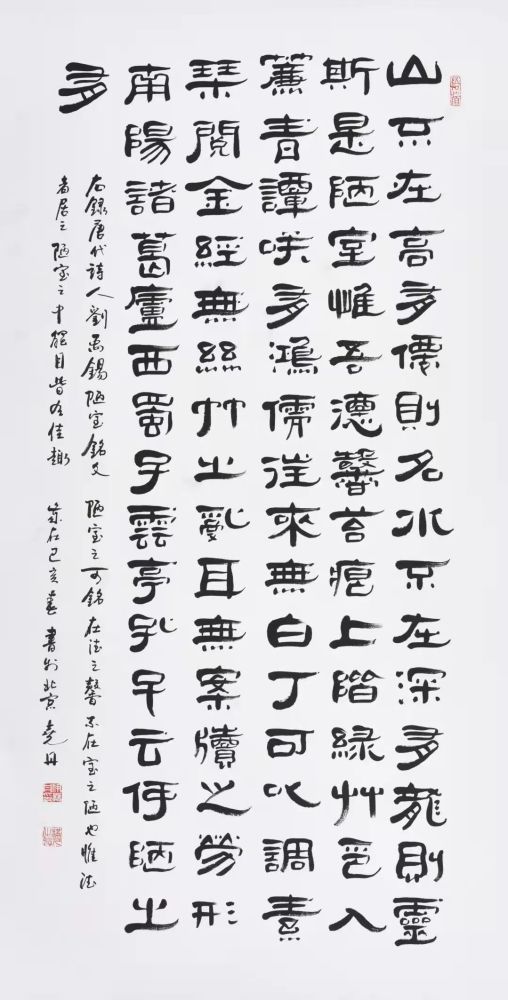 山不在高有僊則名水不在深有龍則靈
斯是陋室惟吾德馨苔痕上階緑艸色入
簾青譚咲有鴻儒往來無白丁可以調素
琴閱金經無絲竹之亂耳無案牘之勞形
南陽諸葛廬西蜀子雲亭孔子云何陋之
有
右録唐代詩人劉禹錫陋室銘文 陋室之可銘在德之馨不在室之陋也惟德
者居之陋室之中觸目皆成佳趣 歲在己亥春書於北京堯丹